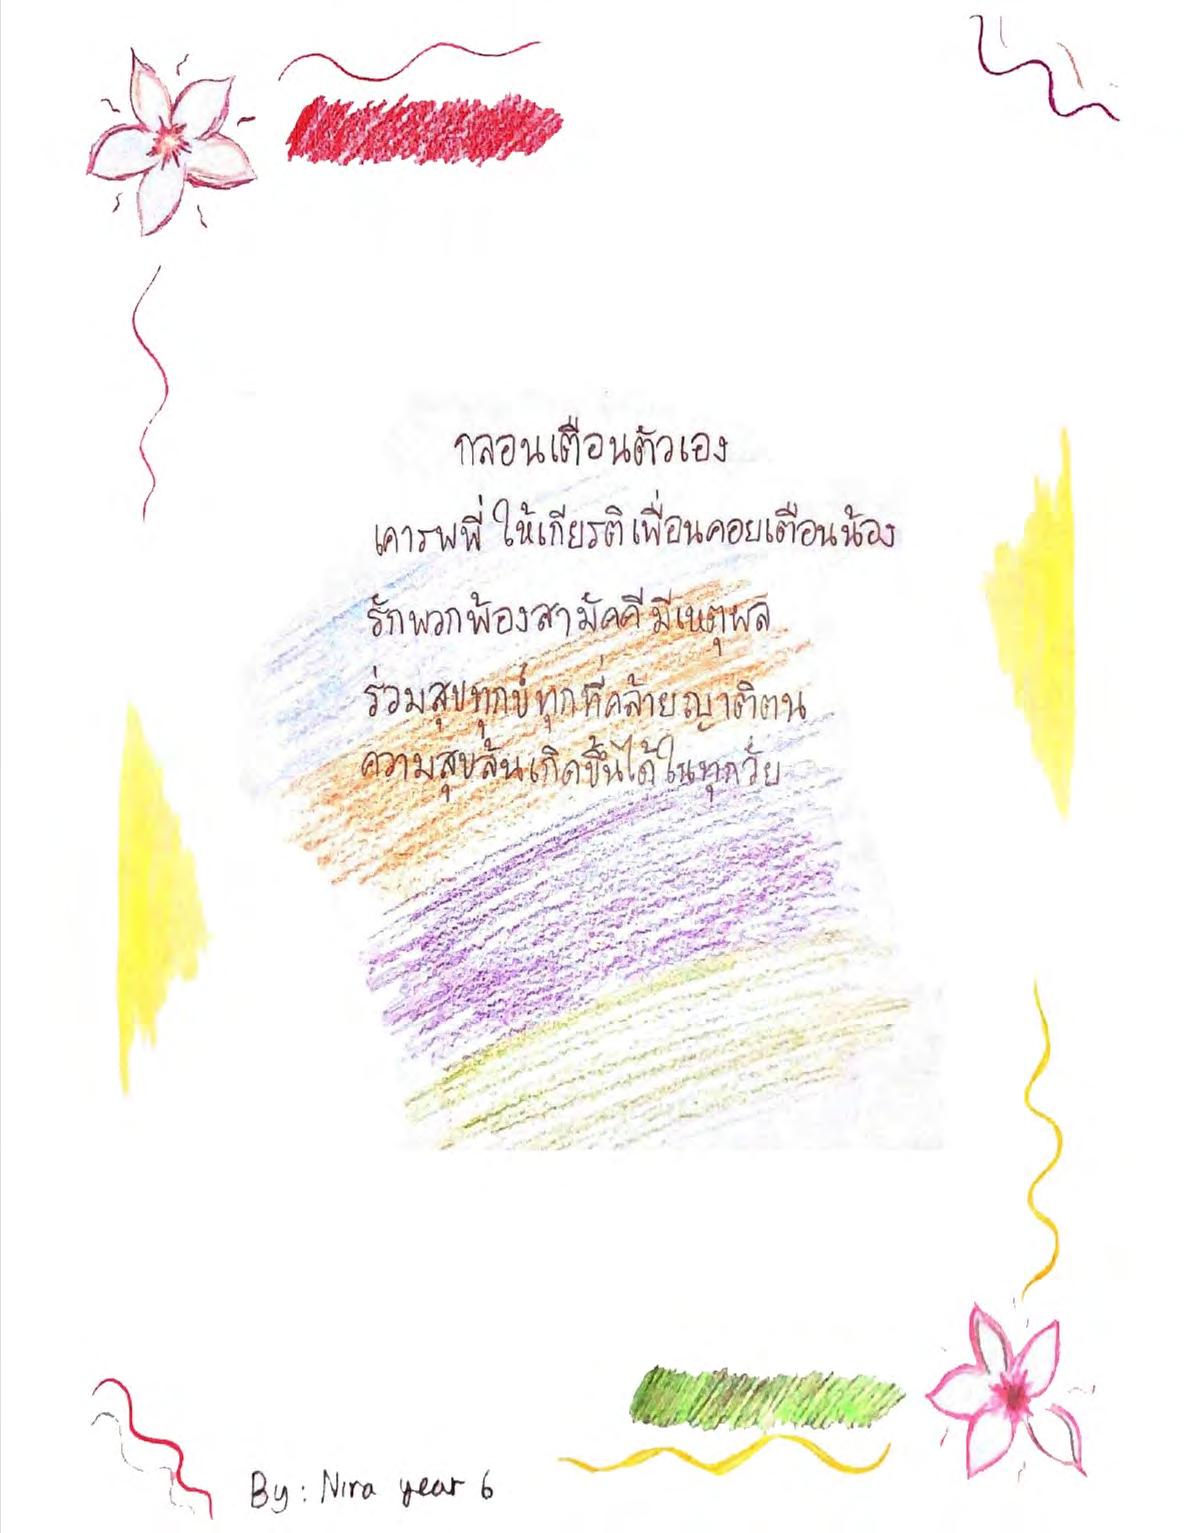 กลอนเตือนตัวเอง
เคารพพี่ ให้เกียรติเพื่อนคอยเตือนน้อง
รักพวกพ้องสามัคคี มีเหตุผล
ร่วมสุขทุกข์ทุกที่คล้ายญาติตน
ความสุขล้นเกิดขึ้นได้ในทุกวัย
By: Nira year 6